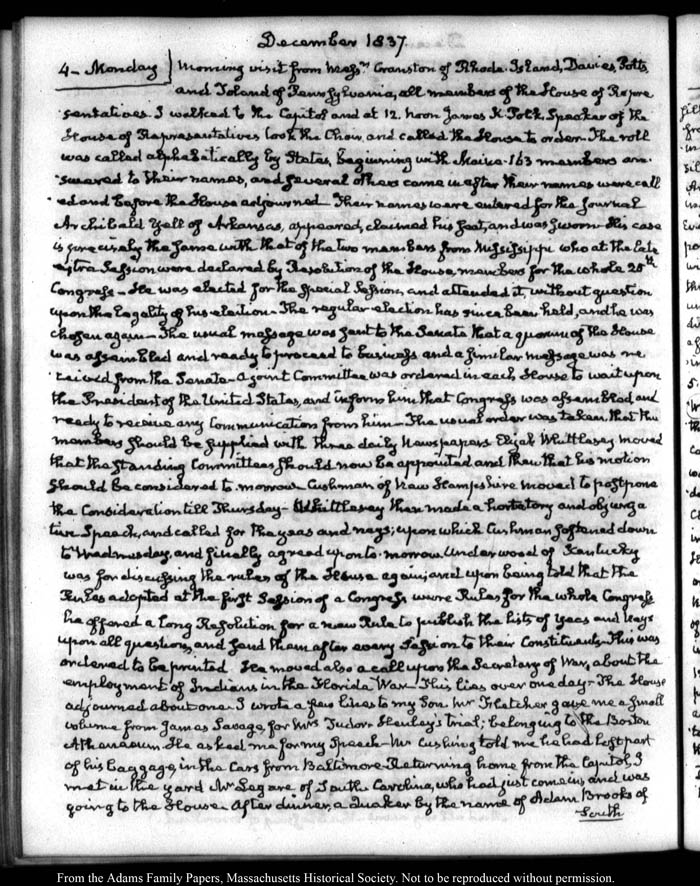 December 1837.
4- Monday } Morning visit from Messrs. Cranston of Rhode-Island, Davies, Potts,
and Toland of Pennsylvania, all members of the House of Repre
sentatives. I walked to the Capitol and at 12. noon James K. Polk, Speaker of the
House of Representatives took the Chair, and called the House to order. The roll
was called alphabetically by States, beginning with Maine. 163 members an-
swered to their names, and several others came in after their names were call
ed and before the House adjourned. Their names were entered for the Journal
Archibald Yell of Arkansas, appeared, claimed his seat, and was sworn. His case
is precisely the same with that of the two members from Mississippi who at the late
extra Session were declared by Resolution of the House, members for the whole 25th.
Congress- He was elected for the special Session, and attended it, without question
upon the legality of his election- The regular election has since been held, and he was
chosen again- The usual message was sent to the Senate that a quorum of the House
was assembled and ready to proceed to business and a similar message was re
ceived from the Senate- a joint Committee was ordered in each House to wait upon
the President of the United States, and inform him that Congress was assembled, and
ready to receive any Communication from him- The usual order was taken that the
members should be supplied with three daily Newspapers. Elijah Whittlesey moved
that the standing Committees should now be appointed and then that his motion
should be considered to-morrow. Cushman of New Hampshire moved to postpone
the Consideration till Thursday- Whittlesey then made a hortatory and objurga
tive Speech, and called for the yeas and nays; upon which Cushman softened down
to Wednesday, and finally agreed upon to-morrow. Underwood of Kentucky
was for discussing the rules of the House again; and upon being told that the
Rules adopted at the first Session of a Congress were Rules for the whole Congress
he offered a long Resolution for a new Rule to publish the lists of yeas and nays
upon all questions, and send them after every Session to their Constituents- This was
ordered to be printed. He moved also a call upon the Secretary of War, about the
employment of Indians in the Florida War- This lies over one day- The House
adjourned about one. I wrote a few lines to my Son. Mr Fletcher gave me a small
volume from James Savage, for Mrs Tudor. Henley's trial; belonging to the Boston
Athenaeum. He asked me for my Speech- Mr Cushing told me he had left part
of his baggage, in the Cars from Baltimore- Returning home from the Capitol, I
met in the yard Mr Legare of South Carolina, who had just come in, and was
going to the House. After dinner, a Quaker by the name of Adam Brooks of
South
From the Adams Family Papers, Massachusetts Historical Society. Not to be reproduced without permission.